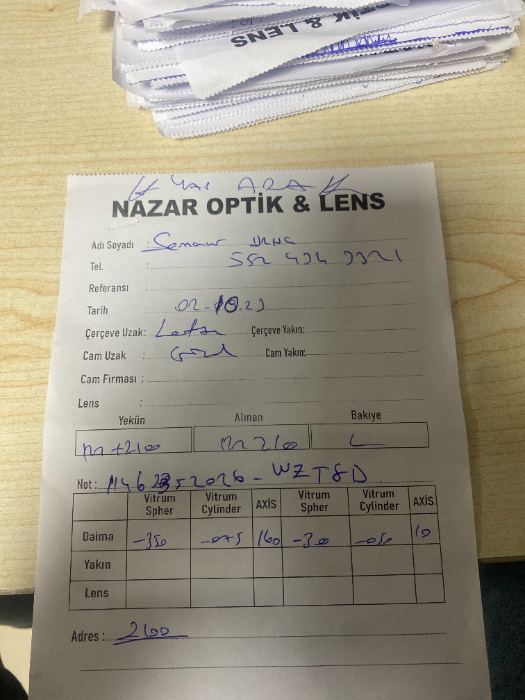 OPTİK & LENS
NAZAR OPTİK & LENS
Adı Soyadı : Semanur
Tel. : 552 434 3321
Referansı :
Tarih : 02-10.23
Çerçeve Uzak: Çerçeve Yakın:
Cam Uzak : Cam Yakın:
Cam Firması :
Lens :
Yekün Alınan Bakiye
m+2100 m 2100
Not : WZTSD
Vitrum Spher Vitrum Cylinder AXİS Vitrum Spher Vitrum Cylinder AXİS
Daima -350 -075 160 -30 -050 10
Yakın
Lens
Adres : 2100